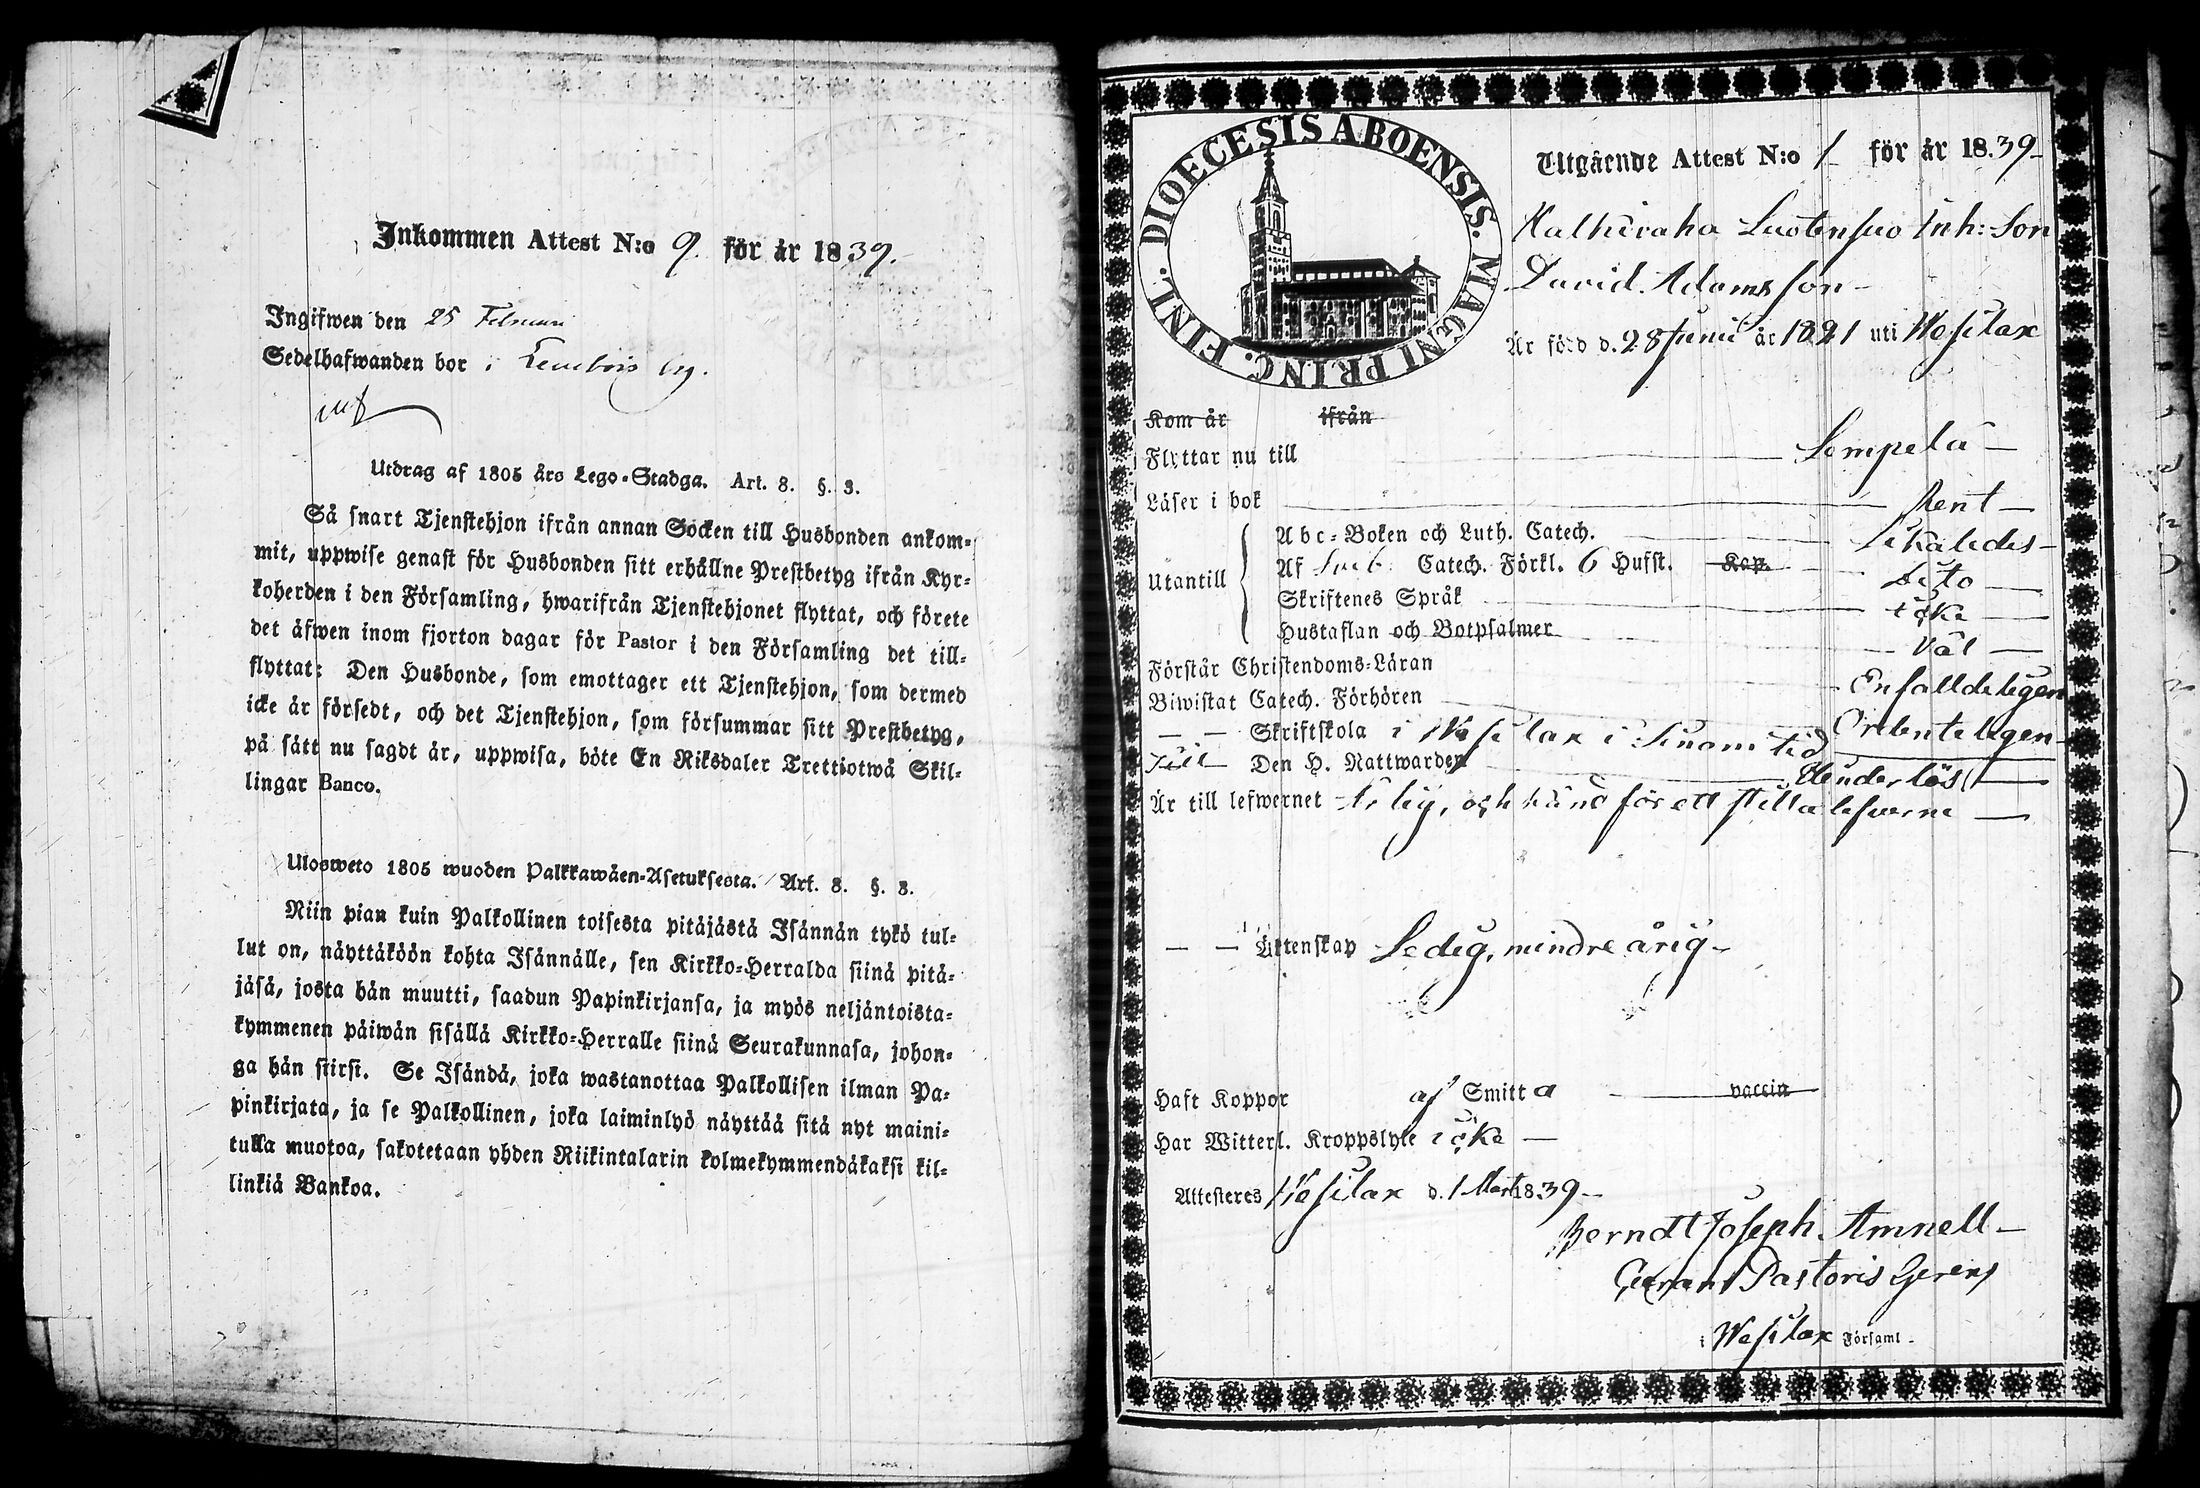 Inkommen Attest N:o 9. för år 1839.
Ingifwen den 25 Februari
Sedelhafwanden bor i
Utdrag af 1805 års Lego-Stadga. Art. 8. §. 3.
Så snart Tjenstehjon ifrån annan Socken till Husbonden ankom-
mit, uppwise genast för Husbonden sitt erhållne Prestbetyg ifrån Kyr-
koherden i den Församling, hwarifrån Tjenstehjonet flyttat, och förete
det äfwen inom fjorton dagar för Pastor i den Församling det till-
flyttat: Den Husbonde, som emottager ett Tjenstehjon, som dermed
icke är försedt, och det Tjenstehjon, som försummar sitt Prestbetyg,
på sätt nu sagdt är, uppwisa, böte En Riksdaler Trettiotwå Skil-
lingar Banco.
Ulosweto 1805 wuoden Palkkawäen-Asetuksesta. Art. 8. §. 3.
Niin pian kuin Palkollinen toisesta pitäjästä Isännän tykö tul-
lut on, näyttäköön kohta Isännälle, sen Kirkko-Herralda siinä pitä-
jäsä, josta hän muutti, saadun Papinkirjansa, ja myös neljäntoista-
kymmenen päiwän sisällä Kirkko-Herralle siinä Seurakunnasa, johon-
ga hän siirsi. Se Isändä, joka wastanottaa Palkollisen ilman Pa-
pinkirjata, ja se Palkollinen, joka laiminlyö näyttää sitä nyt maini-
tulla muotoa, sakotetaan yhden Riikintalarin kolmekymmendäkaksi kil-
linkiä Bankoa.
DIOECESIS ABOENSIS. MAGNI PRINC. FINL.
Utgående Attest N:o 1 för år 1839
Luotensuo Inh: Son
David Adamsson
Är född d. 28 Junii år 1821 uti Wesilax
Kom år ifrån
Flyttar nu till Lempelä
Läser i bok Rent
Utantill
Abc-Boken och Luth. Catech. Likaledes
Af Sveb. Catech. Förkl. 6 Hufst. Kap. Dito
Skriftenes Språk icke
Hustaflan och Botpsalmer Väl
Förstår Christendoms-Läran Enfalldeligen
Biwistat Catech. Förhören Ordenteligen
— — Skriftskola i Wesilax i sinom tid
Till Den H. Nattwarden
Är till lefwernet Ärlig, och känd för ett stilla lefwerne
— — Äktenskap Ledig, mindre årig
Haft Koppor af Smitta vaccin
Har Witterl. Kroppslyte icke
Attesteres Wesilax d. 1 Mart 1839
Berndt Joseph Amnell
Pastoris Gerens
i Wesilax Församl.